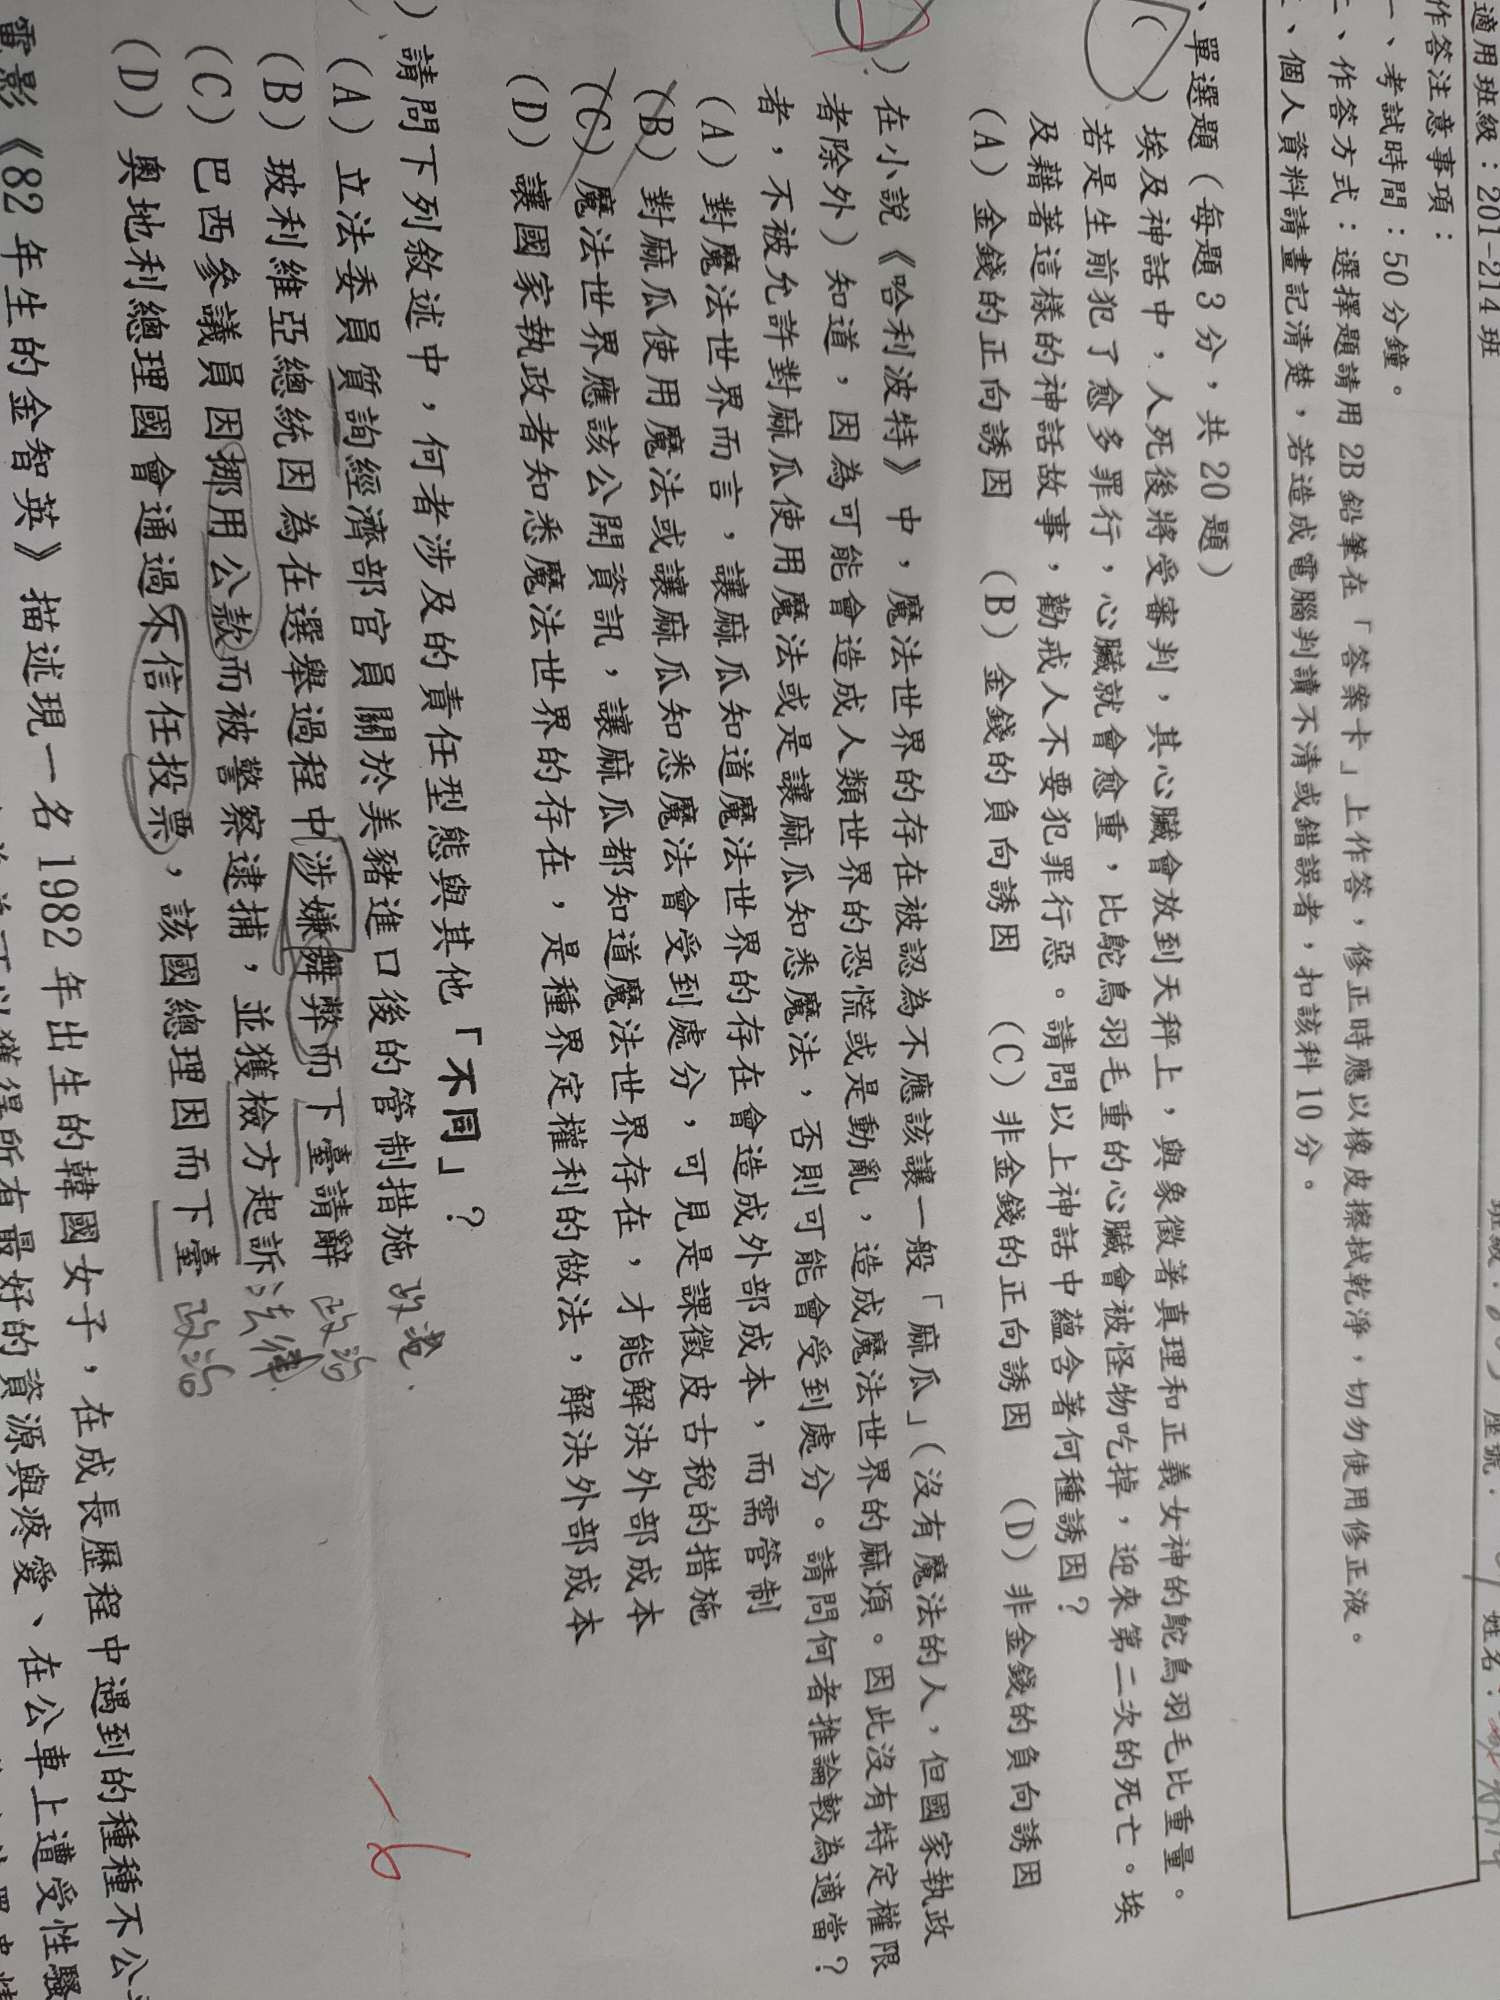 適用班級：201-214 班
班級： 座號： 姓名：
作答注意事項：
一、考試時間：50 分鐘。
二、作答方式：選擇題請用 2B 鉛筆在「答案卡」上作答，修正時應以橡皮擦拭乾淨，切勿使用修正液。
三、個人資料請畫記清楚，若造成電腦判讀不清或錯誤者，扣該科 10 分。
、單選題（每題 3 分，共 20 題）
( ) 埃及神話中，人死後將受審判，其心臟會放到天秤上，與象徵著真理和正義女神的鴕鳥羽毛比重量。
若是生前犯了愈多罪行，心臟就會愈重，比鴕鳥羽毛重的心臟會被怪物吃掉，迎來第二次的死亡。埃
及藉著這樣的神話故事，勸戒人不要犯罪行惡。請問以上神話中蘊含著何種誘因？
(A) 金錢的正向誘因 (B) 金錢的負向誘因 (C) 非金錢的正向誘因 (D) 非金錢的負向誘因
) 在小說《哈利波特》中，魔法世界的存在被認為不應該讓一般「麻瓜」(沒有魔法的人，但國家執政
者除外) 知道，因為可能會造成人類世界的恐慌或是動亂，造成魔法世界的麻煩。因此沒有特定權限
者，不被允許對麻瓜使用魔法或是讓麻瓜知悉魔法，否則可能會受到處分。請問何者推論較為適當？
(A) 對魔法世界而言，讓麻瓜知道魔法世界的存在會造成外部成本，而需管制
(B) 對麻瓜使用魔法或讓麻瓜知悉魔法會受到處分，可見是課徵皮古稅的措施
(C) 魔法世界應該公開資訊，讓麻瓜都知道魔法世界存在，才能解決外部成本
(D) 讓國家執政者知悉魔法世界的存在，是種界定權利的做法，解決外部成本
) 請問下列敘述中，何者涉及的責任型態與其他「不同」？
(A) 立法委員質詢經濟部官員關於美豬進口後的管制措施 政治
(B) 玻利維亞總統因為在選舉過程中涉嫌舞弊而下臺請辭 政治
(C) 巴西參議員因挪用公款而被警察逮捕，並獲檢方起訴 法律
(D) 奧地利總理國會通過不信任投票，該國總理因而下臺 政治
-6
電影《82 年生的金智英》描述現一名 1982 年出生的韓國女子，在成長歷程中遇到的種種不公
可以獲得所有最好的資源與疼愛、在公車上遭受性騷